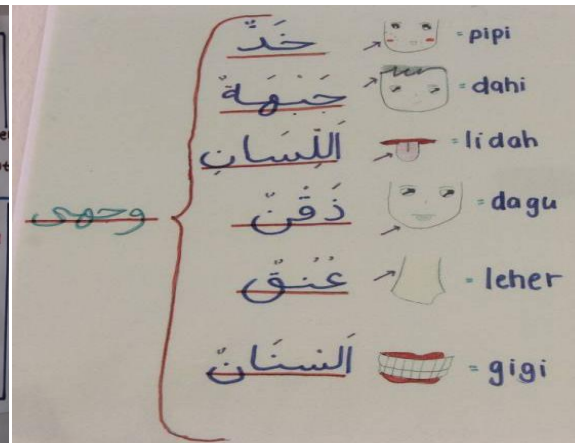 خَدٌّ = pipi
جَبْهَةٌ = dahi
اَللِّسَانِ = lidah
ذَقْنٌ = dagu
وجهى
عُنُقٌ = leher
اَلسنَانٌ = gigi